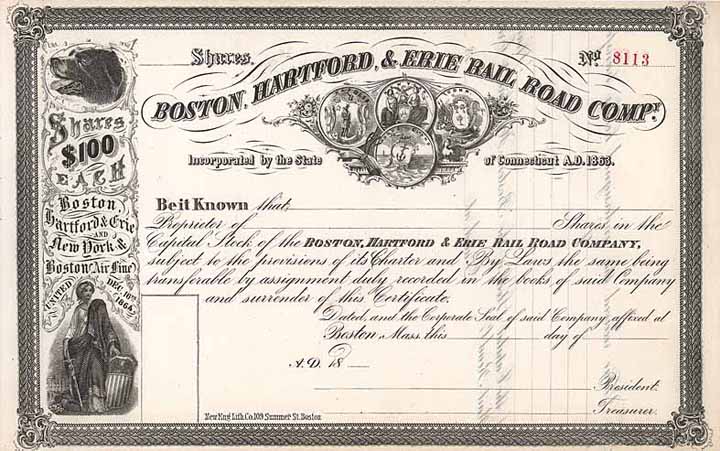 Shares.
No. 8113
BOSTON, HARTFORD, & ERIE RAIL ROAD COMPY.
Incorporated by the State of Connecticut A.D. 1863.
Shares
$100
EACH
Boston
Hartford & Erie
AND
New York &
Boston Air Line
UNITED DEC. 10th 1864
Be it Known that,
Proprietor of Shares in the
Capital Stock of the BOSTON, HARTFORD & ERIE RAIL ROAD COMPANY,
subject to the provisions of its Charter and By Laws the same being
transferable by assignment duly recorded in the books of said Company
and surrender of this Certificate.
Dated, and the Corporate Seal of said Company affixed at
Boston, Mass. this day of
A.D. 18
President.
Treasurer.
New Eng Lith. Co. 109 Summer St. Boston